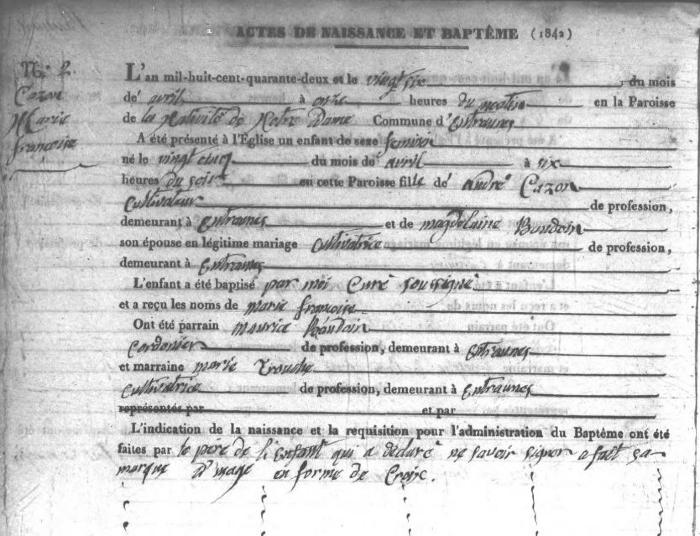 ACTES DE NAISSANCE ET BAPTÊME (1842)
N.º 2.
Cazon
Marie
françoise
L'an mil-huit-cent-quarante-deux et le vingt six du mois
de avril à onze heures du matin en la Paroisse
de la Nativité de Notre Dame Commune d'Entraunes
A été présenté à l'Église un enfant de sexe feminin
né le vingt cinq du mois de avril à six
heures du soir en cette Paroisse fille de andré Cazon
Cultivateur de profession,
demeurant à Entraunes et de magdelaine Baudoin
son épouse en légitime mariage Cultivatrice de profession,
demeurant à Entraunes
L'enfant a été baptisé par moi Curé soussigné
et a reçu les noms de marie françoise
Ont été parrain maurice Baudoin
Cordonier de profession, demeurant à Entraunes
et marraine marie
Cultivatrice de profession, demeurant à Entraunes
représentés par et par
L'indication de la naissance et la requisition pour l'administration du Baptême ont été
faites par le père de l'enfant qui a déclaré ne savoir signer a fait sa
marque en forme de Croix.